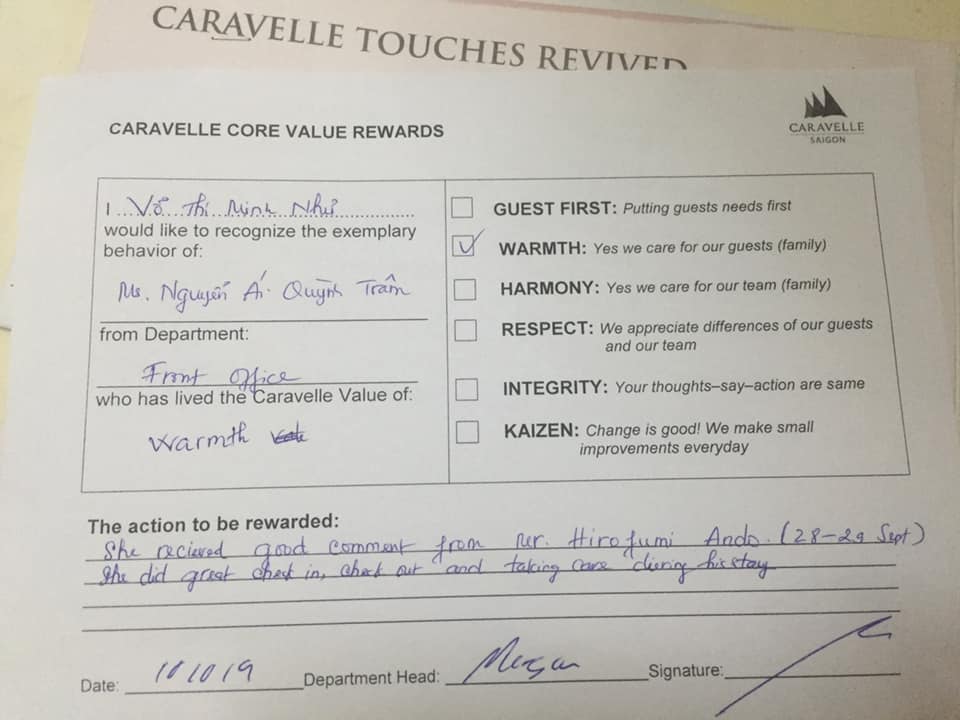 CARAVELLE TOUCHES REVIVED
CARAVELLE CORE VALUE REWARDS
CARAVELLE
SAIGON
I Võ Thị Minh Như
would like to recognize the exemplary
behavior of:
Ms. Nguyễn Ái Quỳnh Trâm
from Department:
Front Office
who has lived the Caravelle Value of:
Warmth
GUEST FIRST: Putting guests needs first
WARMTH: Yes we care for our guests (family)
HARMONY: Yes we care for our team (family)
RESPECT: We appreciate differences of our guests
and our team
INTEGRITY: Your thoughts–say–action are same
KAIZEN: Change is good! We make small
improvements everyday
The action to be rewarded:
She recieved good comment from Mr. Hirofumi Ando. (28-29 Sept)
She did great check in, check out and taking care during his stay
Date: 10 10 19 Department Head: Signature: